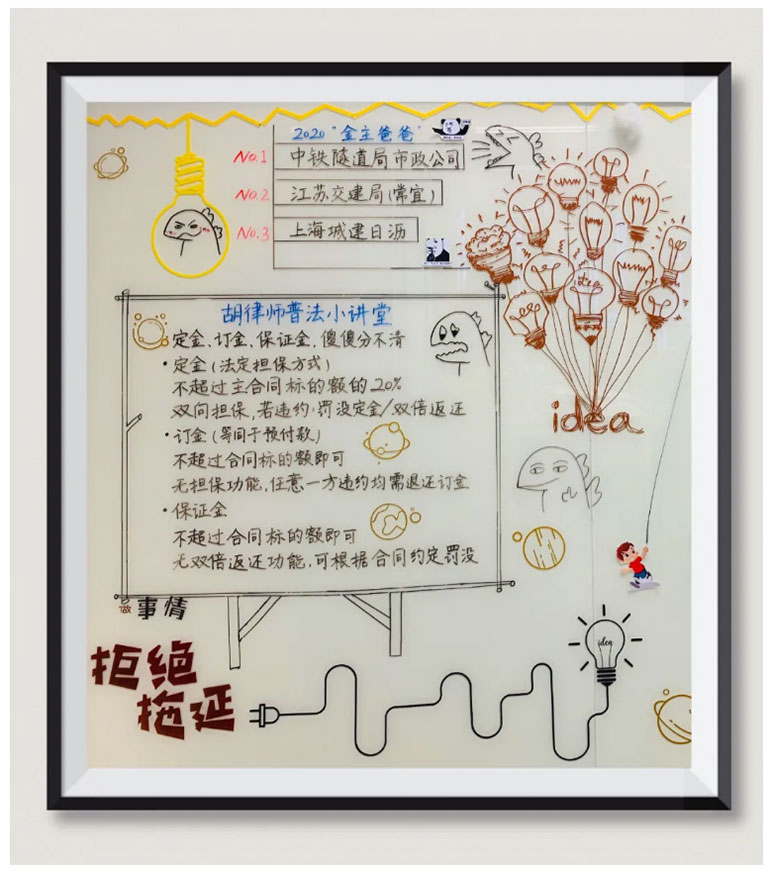 2020 "金主爸爸"
No.1 中铁隧道局市政公司
No.2 江苏交建局(常宜)
No.3 上海城建日沥
胡律师普法小讲堂
定金、订金、保证金,傻傻分不清
·定金(法定担保方式)
不超过主合同标的额的20%
双向担保,若违约:罚没定金/双倍返还
·订金(等同于预付款)
不超过合同标的额即可
无担保功能,任意一方违约均需退还订金
·保证金
不超过合同标的额即可
无双倍返还功能,可根据合同约定罚没
idea
idea
做事情
拒绝
拖延
idea